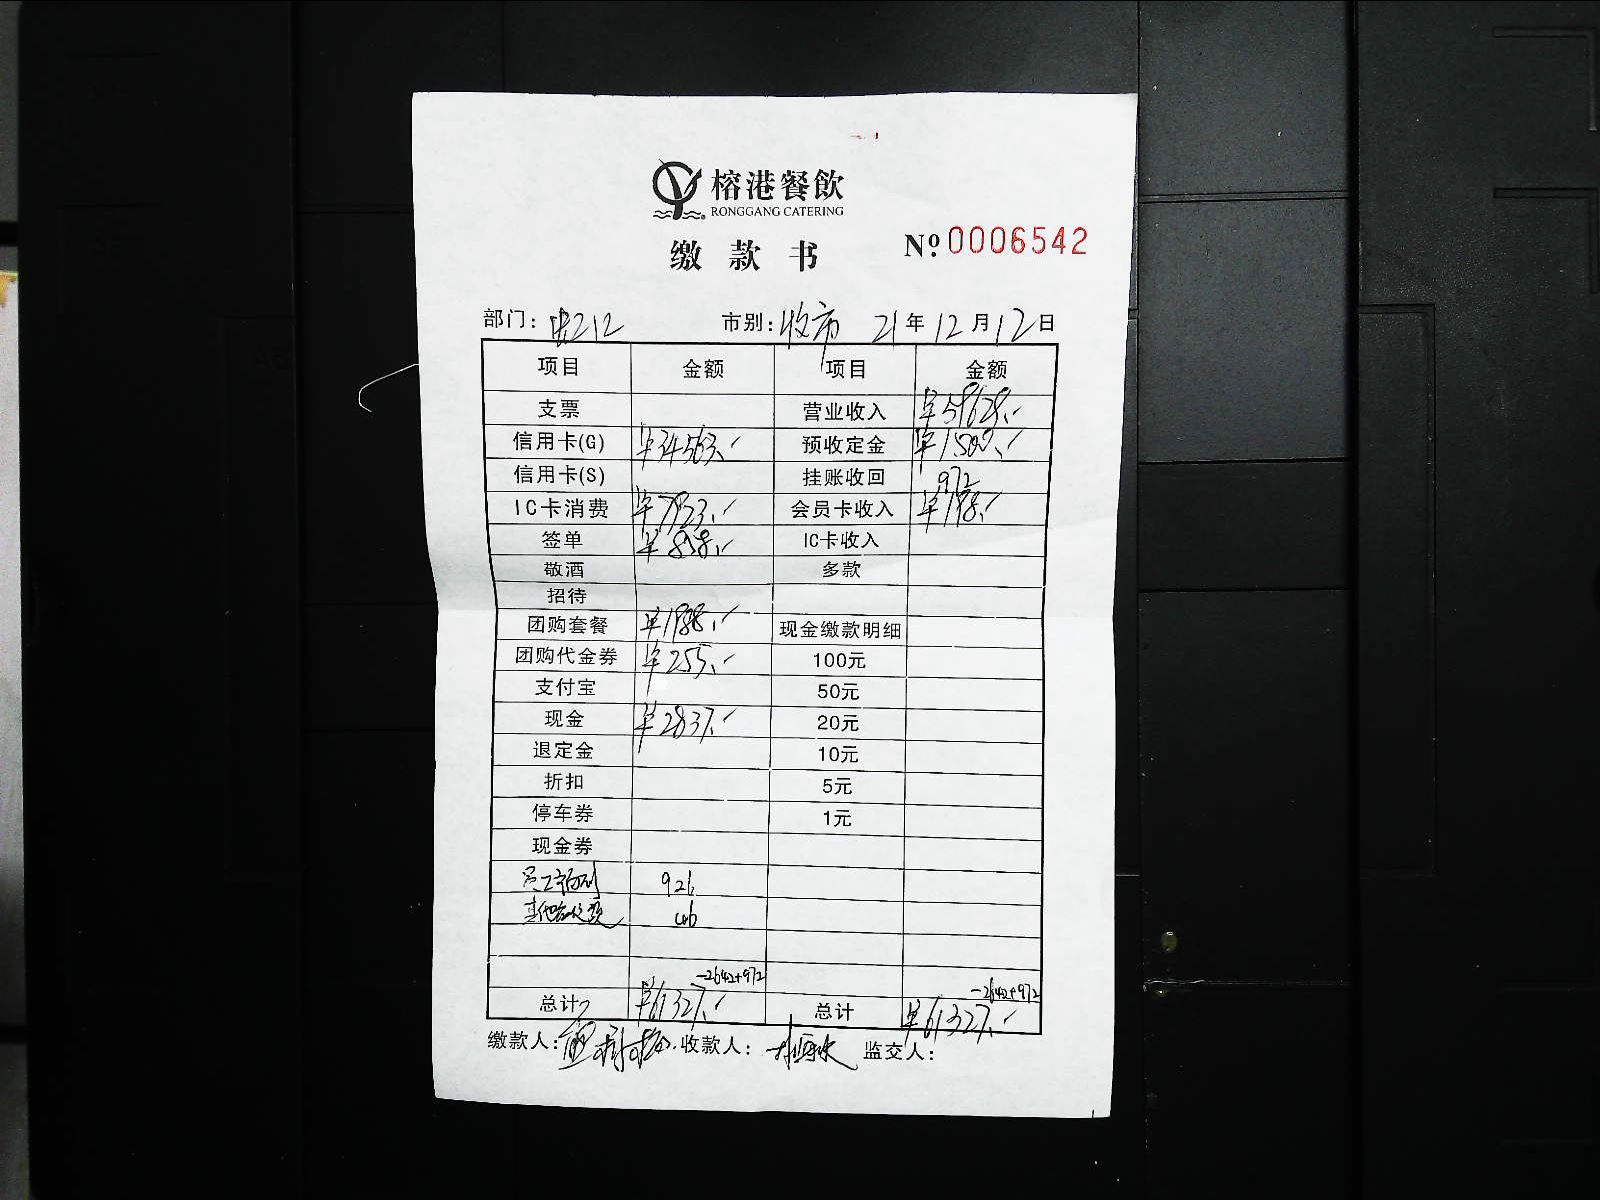 榕港餐飲
RONGGANG CATERING
缴款书
№ 0006542
部门: 市别: 收市 21年12月12日
项目 金额 项目 金额
支票 营业收入 ¥59628.
信用卡(G) ¥34563. 预收定金 ¥1500.
信用卡(S) 挂账收回 972
IC卡消费 ¥7923. 会员卡收入 ¥198.
签单 ¥838. IC卡收入
敬酒 多款
招待
团购套餐 现金缴款明细
团购代金券 ¥255. 100元
支付宝 50元
现金 ¥2837. 20元
退定金 10元
折扣 5元
停车券 1元
现金券
926
-2642+972 -2642+972
总计 ¥61327. 总计 ¥61327.
缴款人: 收款人: 监交人: